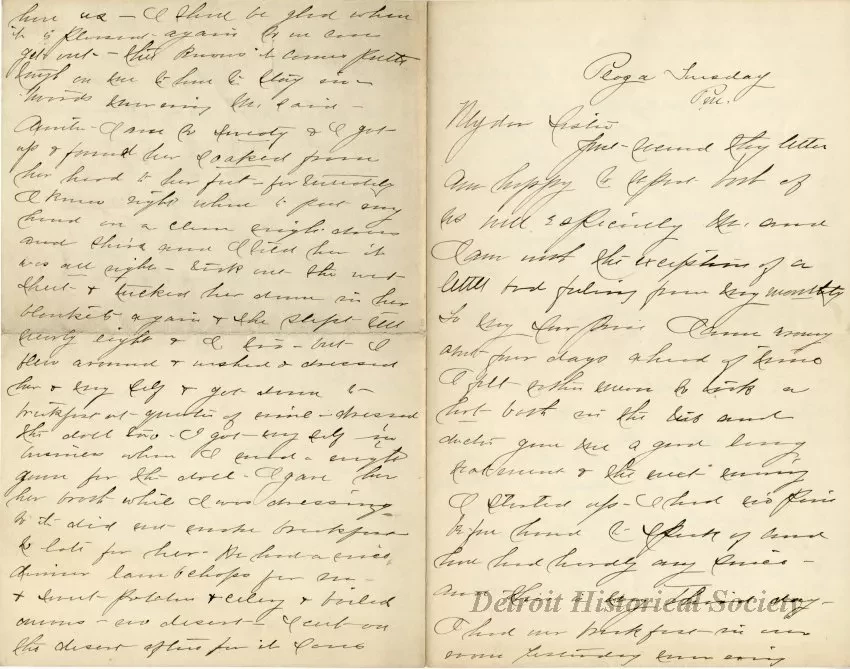 us - I shall be glad when
it is pleasant again & we can
get out - this it comes pretty
tough on me to have to stay in -
Words Mr. Cain -
Anita - came to & I got
up & found her soaked from
her head to her feet - fortunately
I knew right where to put my
hand on a clean night dress
and shirt and I told her it
was all right - took out the wet
sheet & tucked her down in her
blankets again & she slept till
nearly eight & I too - but I
flew around & washed & dressed
her & my self & got down to
breakfast at quarter of nine - dressed
the doll too - I got my self in
business when I made a night
gown for the doll - I gave her
her broth while I was dressing
so it did not make breakfast
so late for her - We had a nice
dinner lamb chops for me -
& sweet potatoes & celery & boiled
onions - no desert - I cut on
the desert after for it
Tuesday
P.M.
My dear Sister
Just received thy letter
am happy to report both of
us well especially Mr. and
I am with the exception of a
little bad feeling from my monthly
To my surprise I came
about four days ahead of time
I felt rather to took a
hot bath in the tub and
doctor gave me a good long
treatment & the next evening
I started up - I had no pain
before hand to speak of and
have had hardly any since -
and this is my third day -
I had our breakfast in our
room yesterday morning
Detroit Historical Society